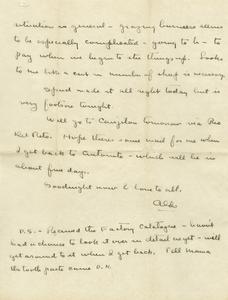 situation in general - grazing business seems
to be especially complicated - going to h- to
pay when we begin to stir things up. Looks
to me like a cut in number of sheep is necessary.
Speed made it all right today but is
very footsore tonight.
Will go to Congdon tomorrow via
Flats. Hope there's some mail for me when
I get back to Antonito - which will be in
about four days.
Goodnight now & love to all.
P.S. - Received the Factory Catalogue - haven't
had a chance to look it over in detail as yet - will
get around to it when I get back. Tell Mama
the tooth paste came O.K.